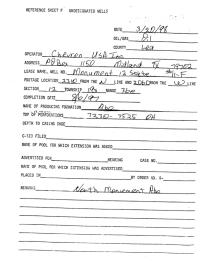 REFERENCE SHEET F UNDESIGNATED WELLS
DATE 3/30/98
OIL/GAS Oil
COUNTY Lea
OPERATOR Chevron USA Inc
ADDRESS Box 1150 Midland TX 79702
LEASE NAME, WELL NO. Monument 12 State #1-F
FOOTAGE LOCATION 2310 FROM THE N LINE AND 2060 FROM THE W LINE
SECTION 12 TOWNSHIP 19s RANGE 36e
COMPLETION DATE
NAME OF PRODUCING FORMATION Abo
TOP OF PERFORATIONS 7230-7525 OH
DEPTH TO CASING SHOE
C-123 FILED
NAME OF POOL FOR WHICH EXTENSION WAS ASKED
ADVERTISED FOR HEARING CASE NO.
NAME OF POOL FOR WHICH EXTENSION WAS ADVERTISED
PLACED IN BY ORDER NO. R-
REMARKS North Monument Abo